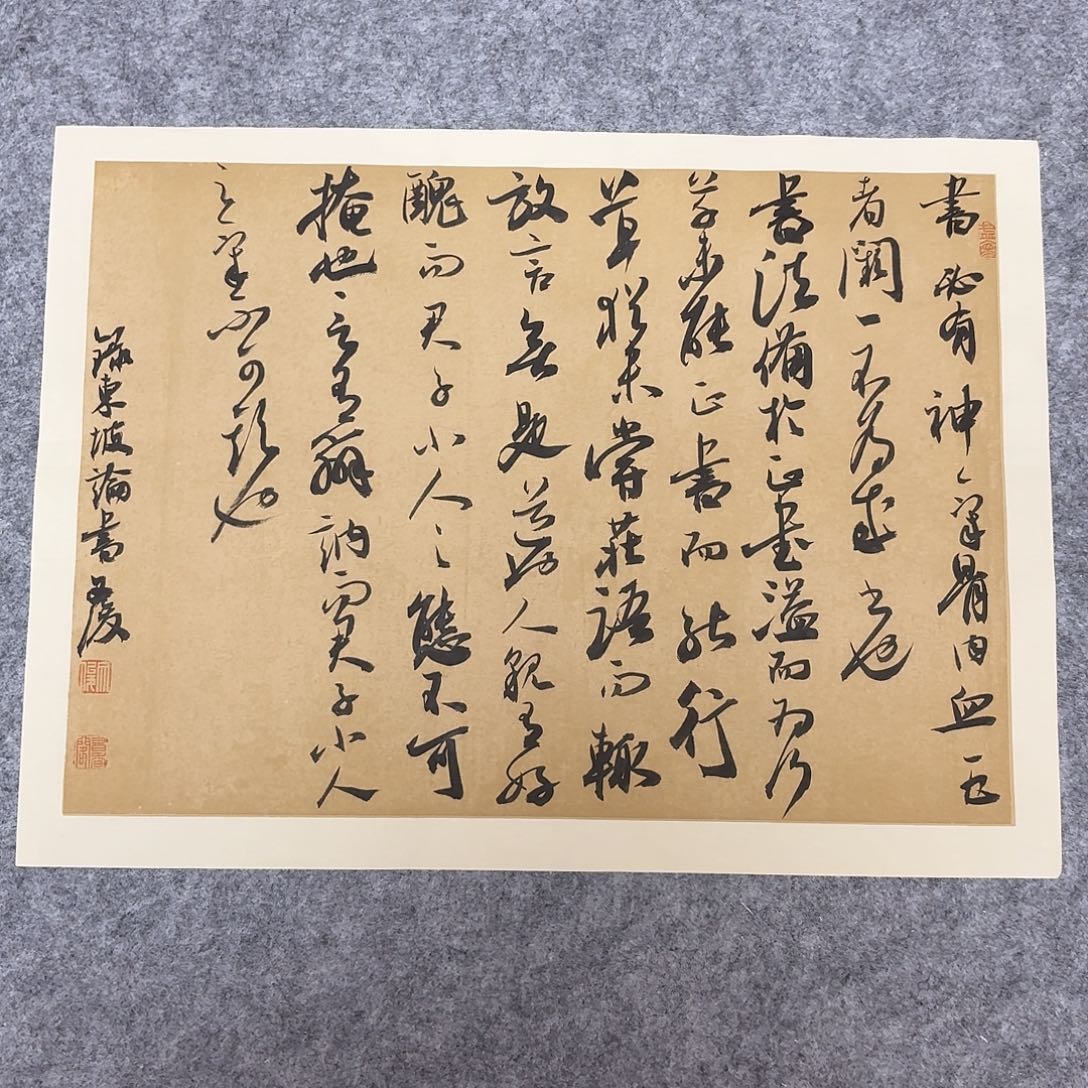 書必有神氣骨肉血五
者闕一不為成書也
書法備於正書溢而為行
草未能正書而能行
草猶未嘗莊語而輒
放言無是道也人貌有好
醜而君子小人之態不可
掩也言有辯訥而君子小人
之氣不可欺也
錄東坡論書